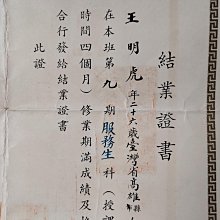 結業證書
王明虎年二十六歲臺灣省高雄縣
在本班第九期服務生科(授課
時間四個月)修業期滿成績及格
合行發給結業證書
此證